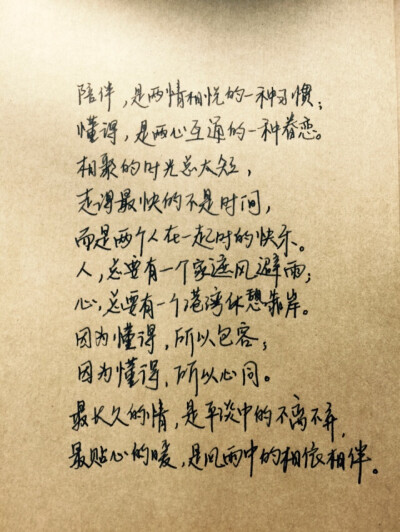 陪伴,是两情相悦的一种习惯;
懂得,是两心互通的一种眷恋。
相聚的时光总太短,
走得最快的不是时间,
而是两个人在一起时的快乐。
人,总要有一个家遮风避雨;
心,总要有一个港湾休憩靠岸。
因为懂得,所以包容;
因为懂得,所以心同。
最长久的情,是平淡中的不离不弃,
最贴心的暖,是风雨中的相依相伴。